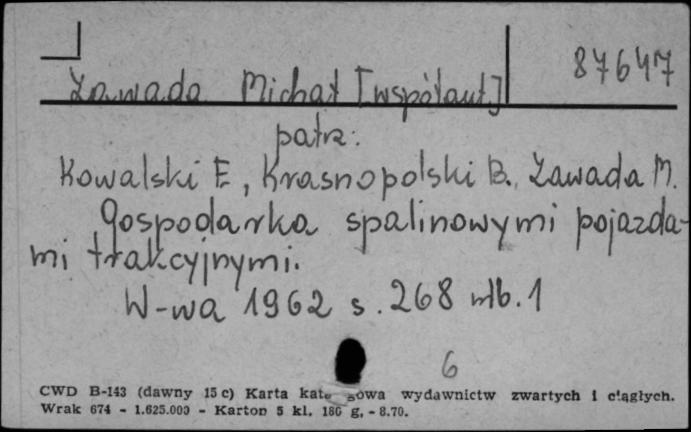 87647
Zawada Michał [współaut]
patrz:
Kowalski E, Krasnopolski B., Zawada M.
Gospodarka spalinowymi pojazda-
mi trakcyjnymi.
W-wa 1962 s. 268 nlb. 1
6
CWD B-143 (dawny 15 c) Karta wydawnictw zwartych i ciągłych.
Wrak 674 - 1.625.000 - Karton 5 kl. 180 g. - 8.70.